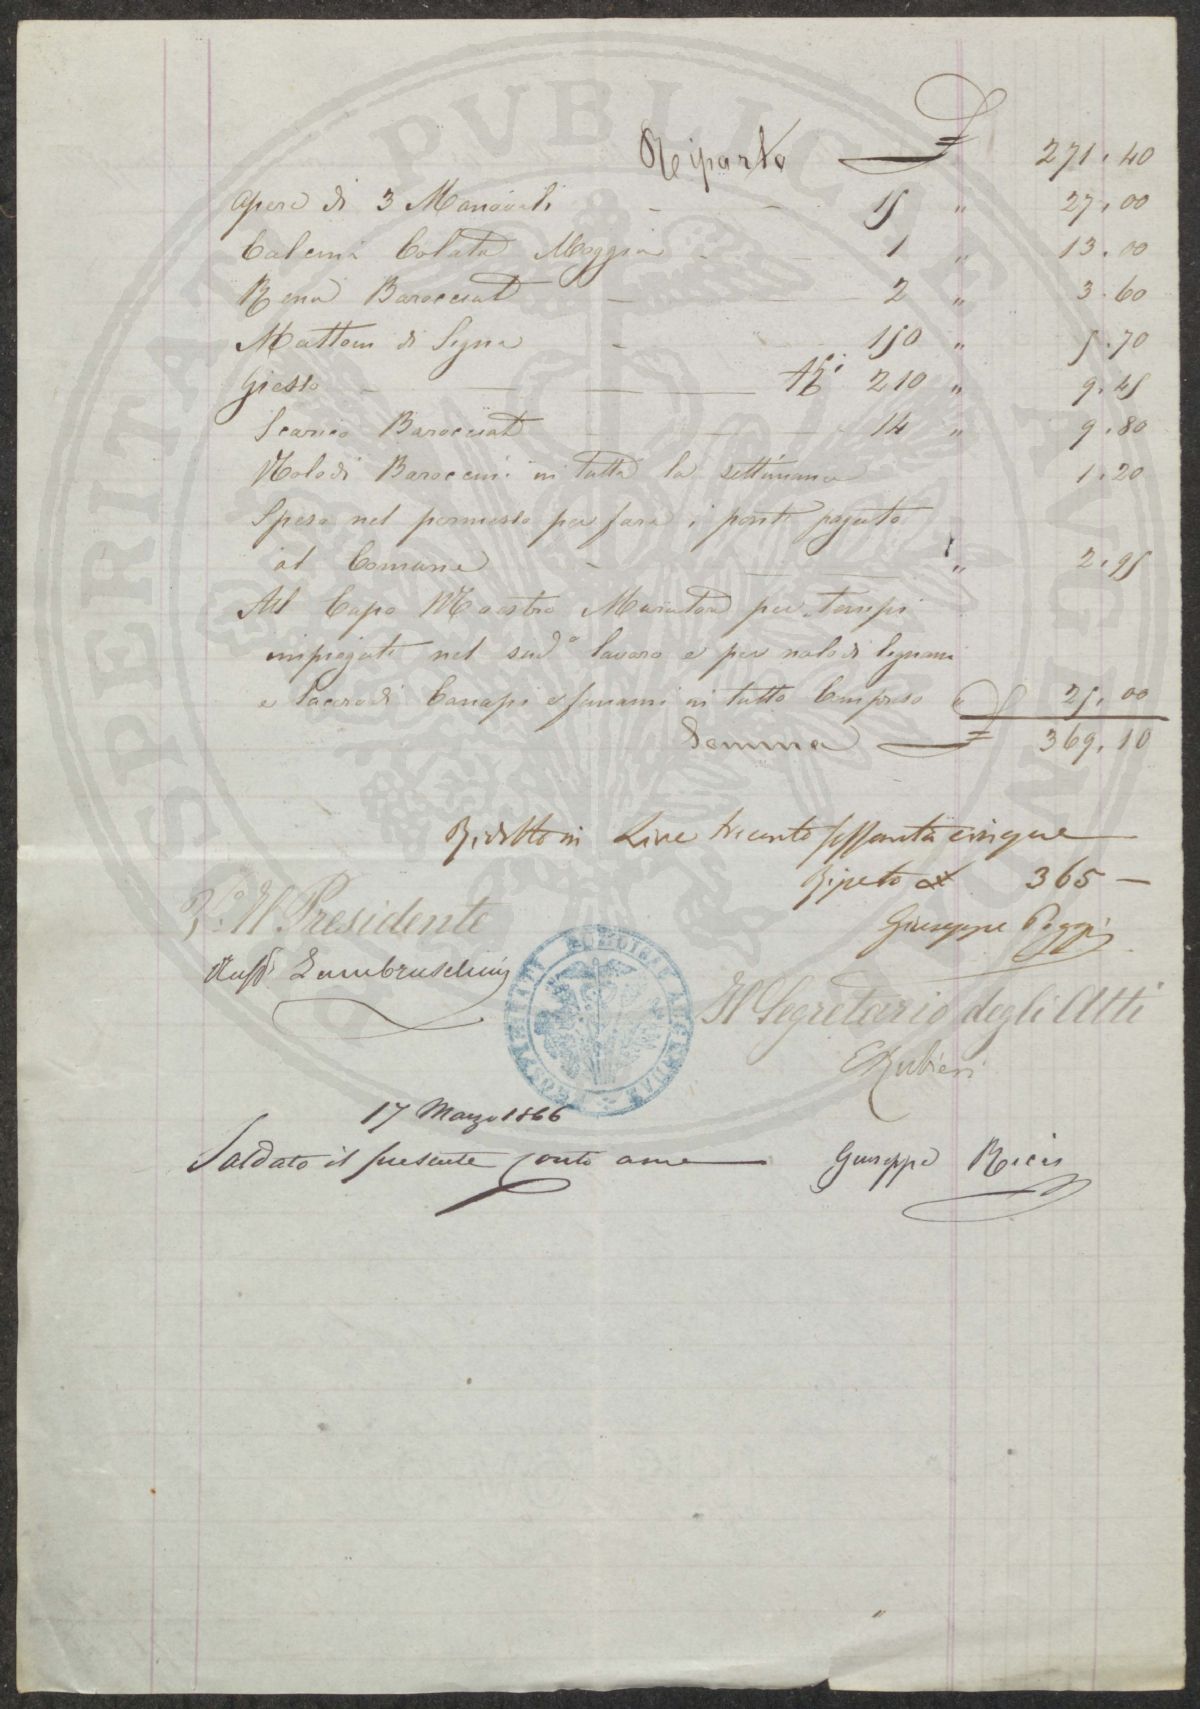 Riporto £ 271.40
Opere di 3 Manovali 15 " 27.00
Calcina Colata Moggia 1 " 13.00
Rena Barocciat 2 " 3.60
Mattoni di Signa 150 " 5.70
Giesso 210 " 9.45
Scarico Barocciat 14 " 9.80
Nolo di Baroccini in tutta la settimana 1.20
Spesa nel permesso per fare i ponti pagato
al Comune " 2.95
Al Capo Maestro Muratore per tempi
impiegati nel sudº lavoro e per nolo di legnami
e lacero di Canapi e funami in tutto Compreso £ 25.00
Somma £ 369.10
Ridotto in Lire trecento sessanta cinque
Ripeto 365 —
Giuseppe Poggi
Vº Il Presidente
Raffº Lambruschini
Il Segretario degli Atti
E Rubieri
17 Marzo 1866
Saldato il presente Conto a me Giuseppe Ricci
PROSPERITATI PUBLICAE AUGENDAE